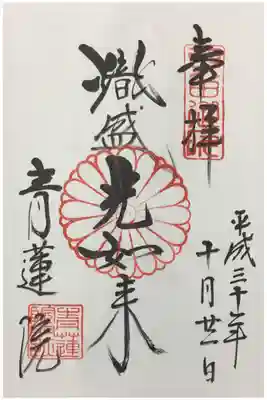 奉拝
平成三十年
十月廿一日
熾盛
光如来
青蓮院